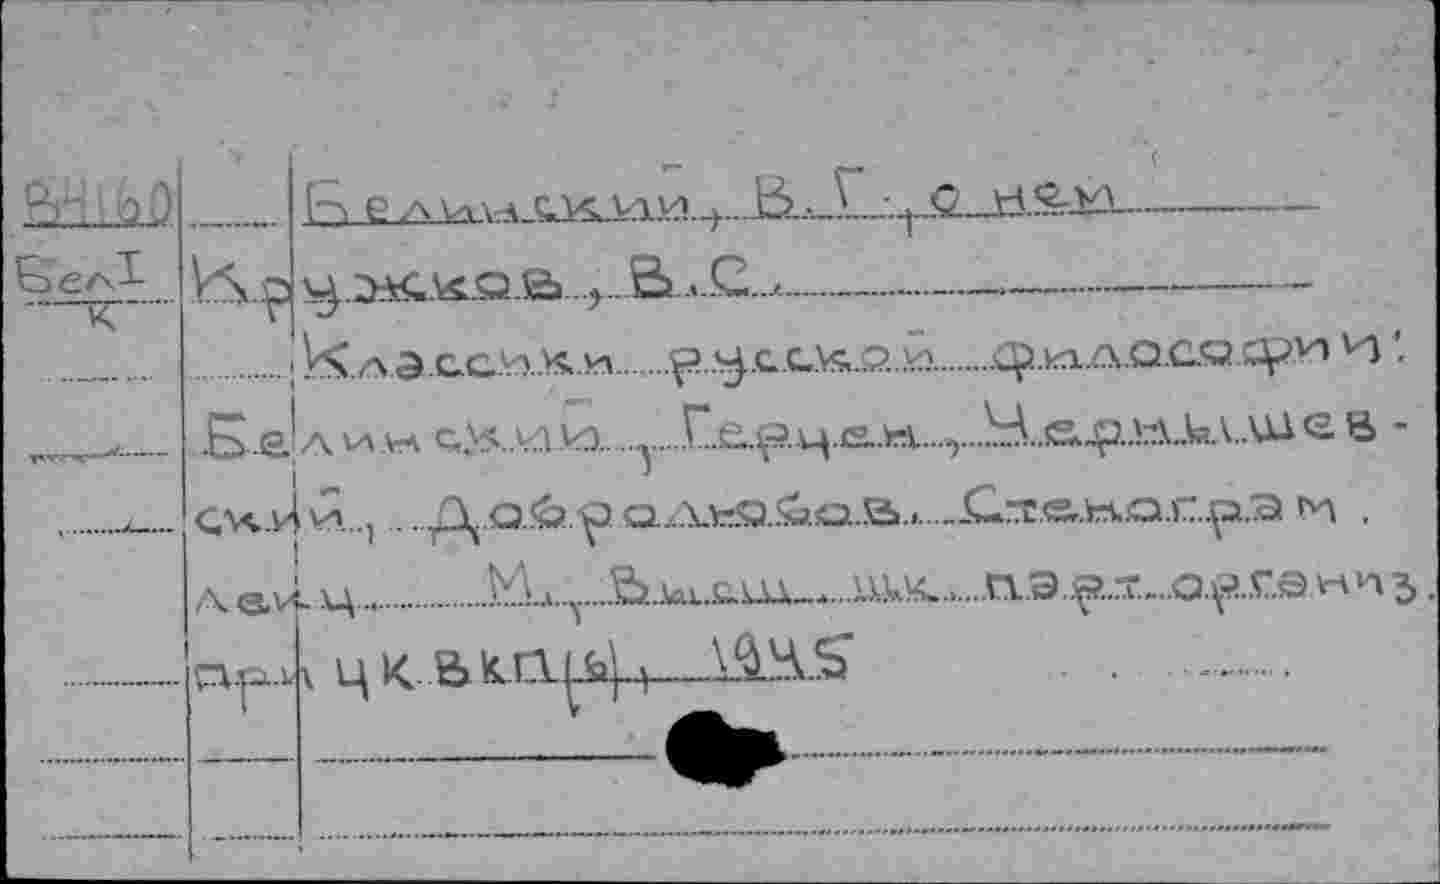 Белинский, В.Г., о нем
БелI Кружков, В.С.
К
Классики русской философии:
Белинский, Герцен, Чернышев-
ский, Добролюбов. Стенограм.
лекц. М., Высш. шк. парт. организ.
при ЦК ВКП(б), 1945